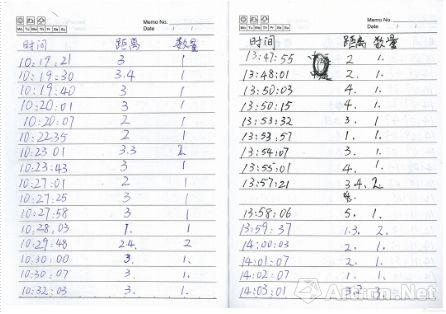 Memo No.
Mo Tu We Th Fr Sa Su
Date
时间 距离 数量
10:19:21 3 1
10:19:30 3.4 1
10:19:40 3 1
10:20:01 3 1
10:20:07 2 1
10:22:35 2 1
10:23:01 3.3 2
10:23:43 3 1
10:27:01 2 1
10:27:25 3 1
10:27:58 3 1
10:28:03 1. 1
10:29:48 2.4. 2
10:30:00 3. 1.
10:30:07 3. 1.
10:32:03 3. 1.
Memo No.
Mo Tu We Th Fr Sa Su
Date
时间 距离 数量
13:47:55 2 1.
13:48:01 2. 1.
13:50:03 4. 1.
13:50:15 4. 1.
13:53:32 3. 1
13:53:57 1. 1.
13:54:07 3. 1.
13:55:01 4. 1
13:57:21 3.4. 2
13:58:06 5. 1.
13:59:37 1.3. 2.
14:00:03 2. 1.
14:01:07 2. 1.
14:02:07 1. 1.
14:03:01
Artron.Net